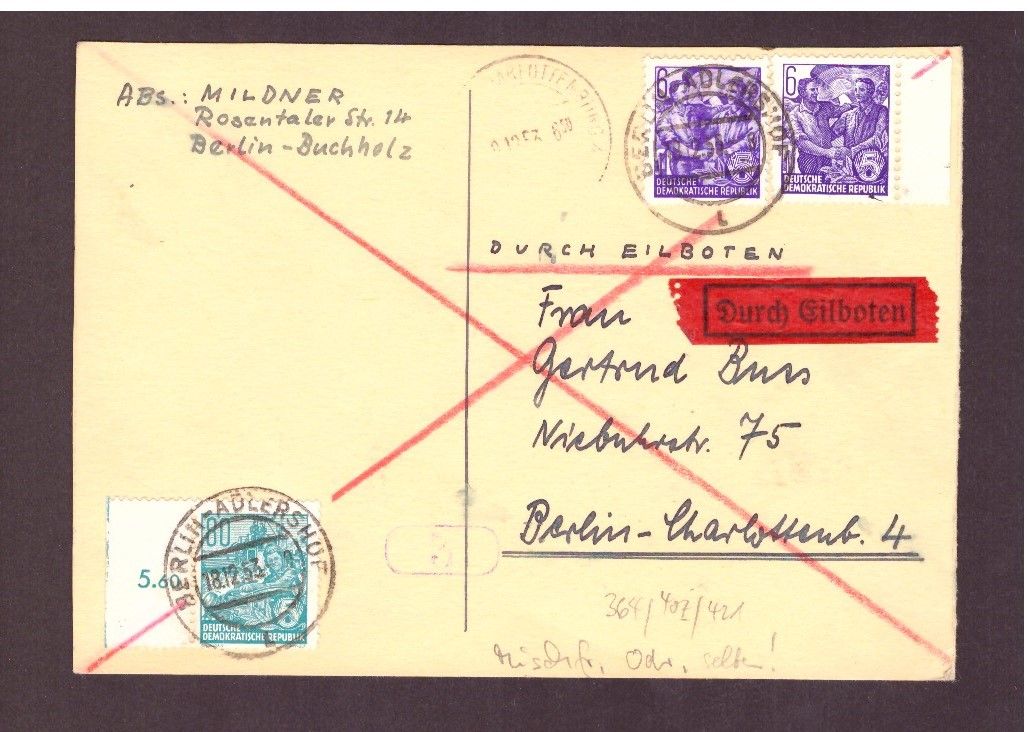 ABS.: MILDNER
Rosentaler Str. 14
Berlin-Buchholz
6
DEUTSCHE
DEMOKRATISCHE REPUBLIK
6
DEUTSCHE
DEMOKRATISCHE REPUBLIK
BERLIN-ADLERSHOF
DURCH EILBOTEN
Durch Eilboten
Frau
Gertrud Buss
Niebuhrstr. 75
Berlin-Charlottenb. 4
5.60
80
BERLIN-ADLERSHOF
18.12.53
DEUTSCHE
DEMOKRATISCHE REPUBLIK
364/407/421
selten!